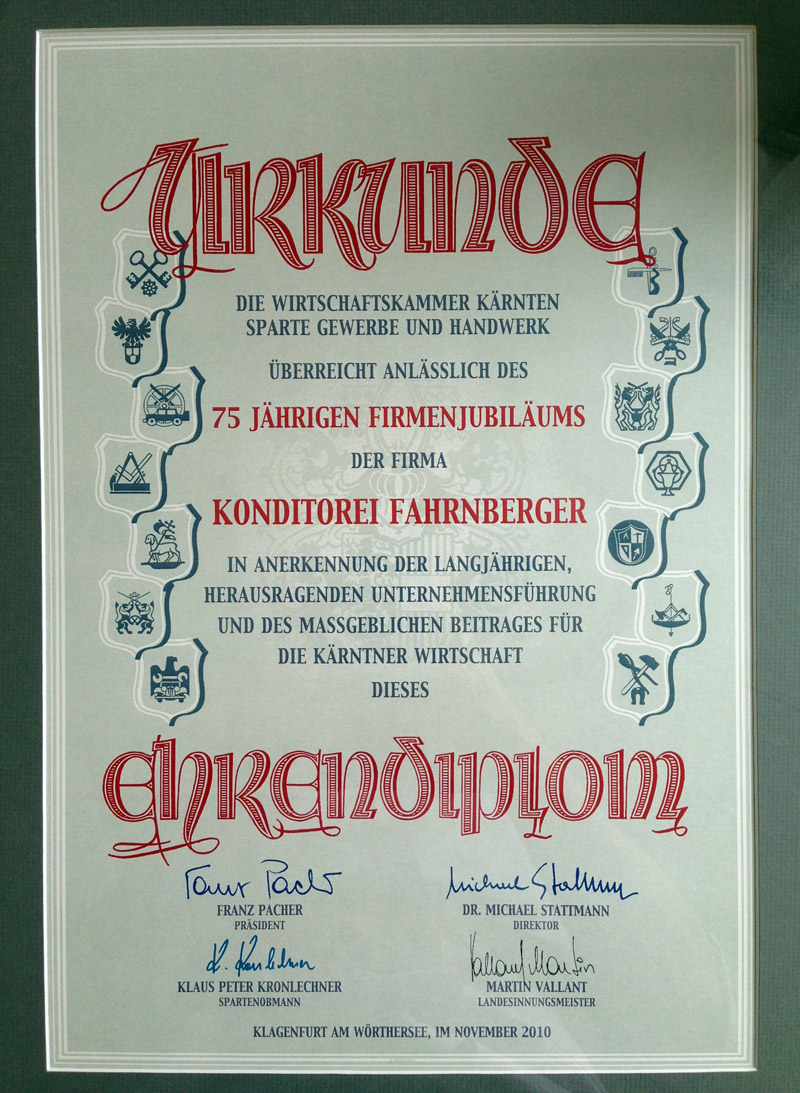 Urkunde
DIE WIRTSCHAFTSKAMMER KÄRNTEN
SPARTE GEWERBE UND HANDWERK
ÜBERREICHT ANLÄSSLICH DES
75 JÄHRIGEN FIRMENJUBILÄUMS
DER FIRMA
KONDITOREI FAHRNBERGER
IN ANERKENNUNG DER LANGJÄHRIGEN,
HERAUSRAGENDEN UNTERNEHMENSFÜHRUNG
UND DES MASSGEBLICHEN BEITRAGES FÜR
DIE KÄRNTNER WIRTSCHAFT
DIESES
Ehrendiplom
Franz Pacher
FRANZ PACHER
PRÄSIDENT
Michael Stattmann
DR. MICHAEL STATTMANN
DIREKTOR
K. Kronlechner
KLAUS PETER KRONLECHNER
SPARTENOBMANN
Vallant Martin
MARTIN VALLANT
LANDESINNUNGSMEISTER
KLAGENFURT AM WÖRTHERSEE, IM NOVEMBER 2010